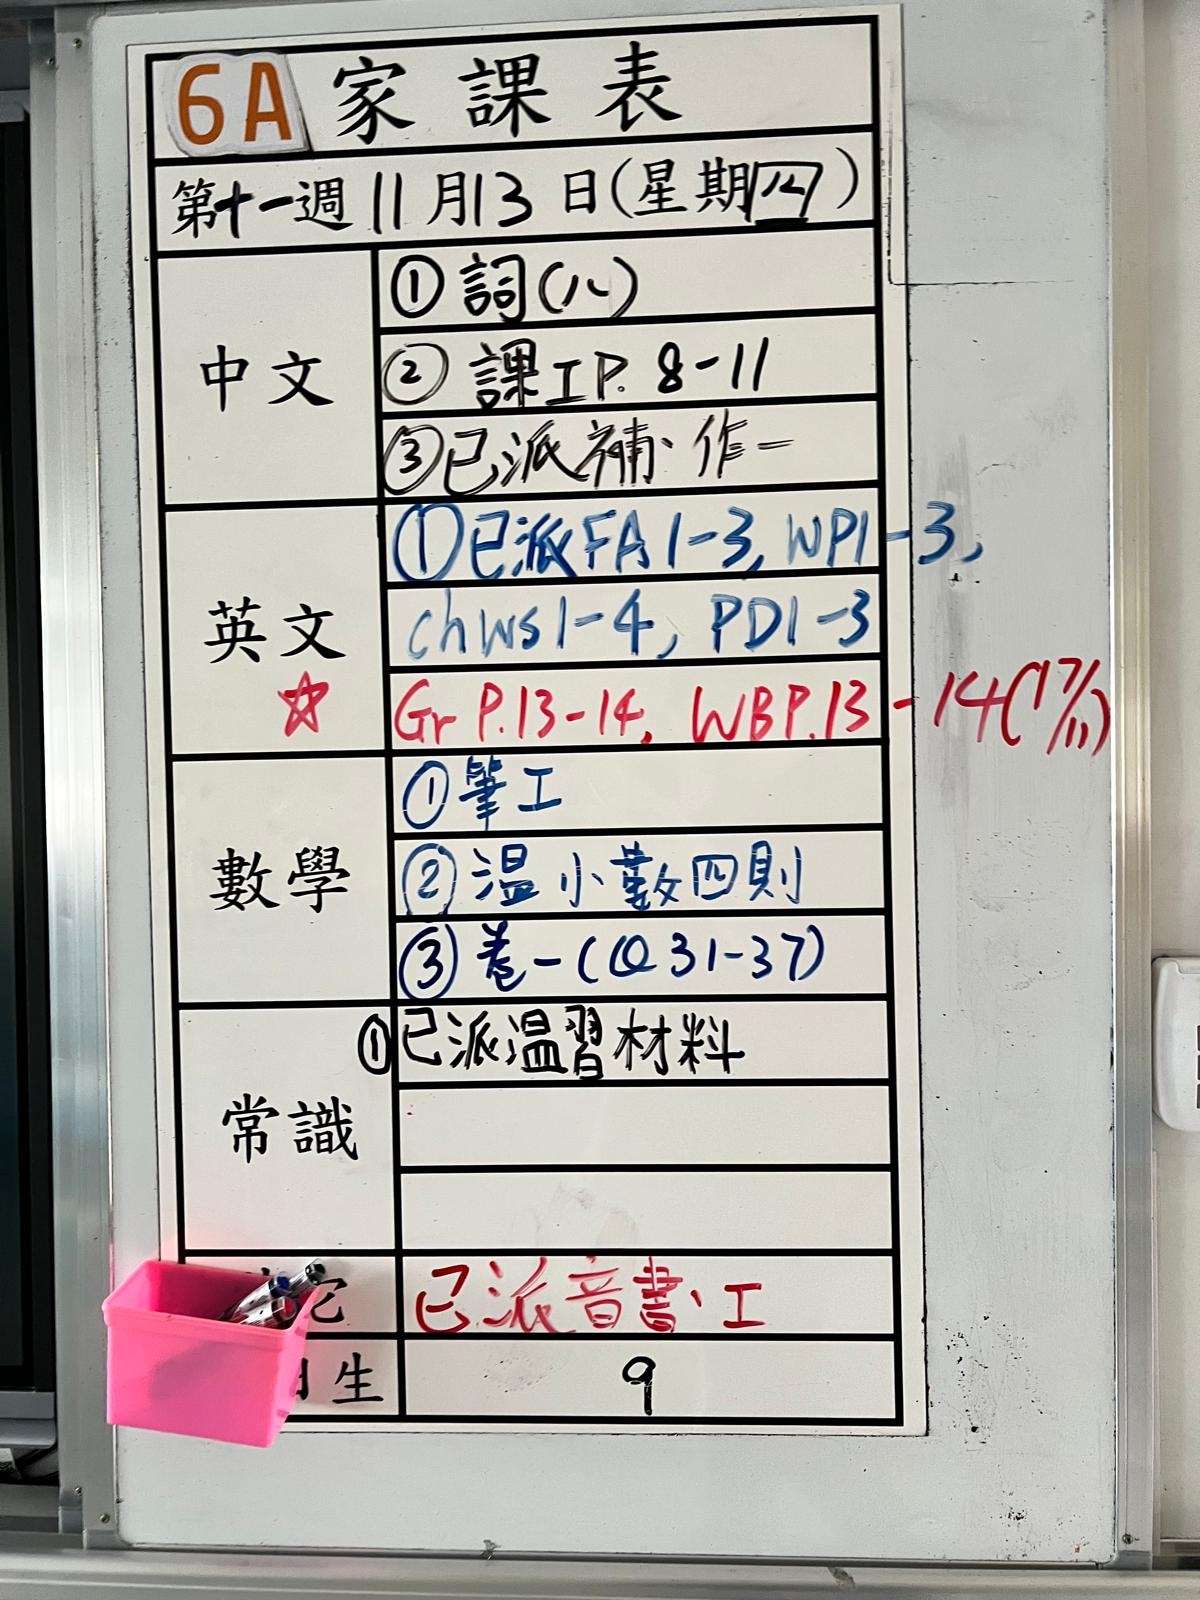 6A 家課表
第十一週 11月13日(星期四)
中文
① 詞(八)
② 課工P. 8-11
③已派補、作一
英文
①已派FA1-3, WP1-3,
chws1-4, PD1-3
☆ Gr P.13-14, WBP.13-14(17/11)
數學
①筆工
②温小數四則
③卷一(Q31-37)
常識
①已派温習材料
已派音書、工
生
9